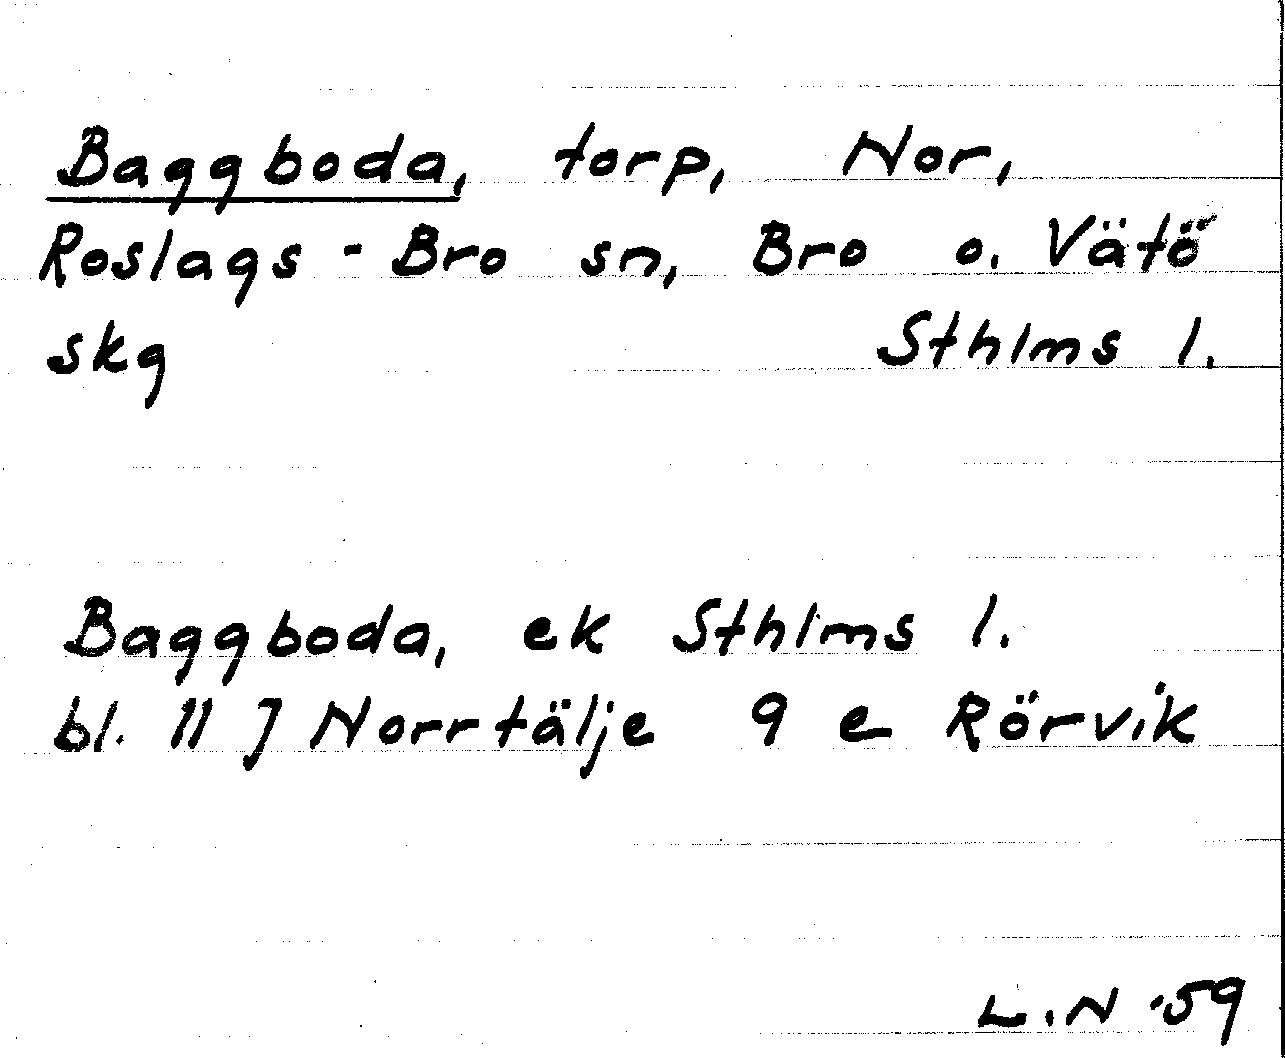 Baggboda, torp, Nor,
Roslags-Bro sn, Bro o. Vätö
skg Sthlms l.
Baggboda, ek Sthlms l.
bl. 11 J Norrtälje 9 e Rörvik
L.N -59